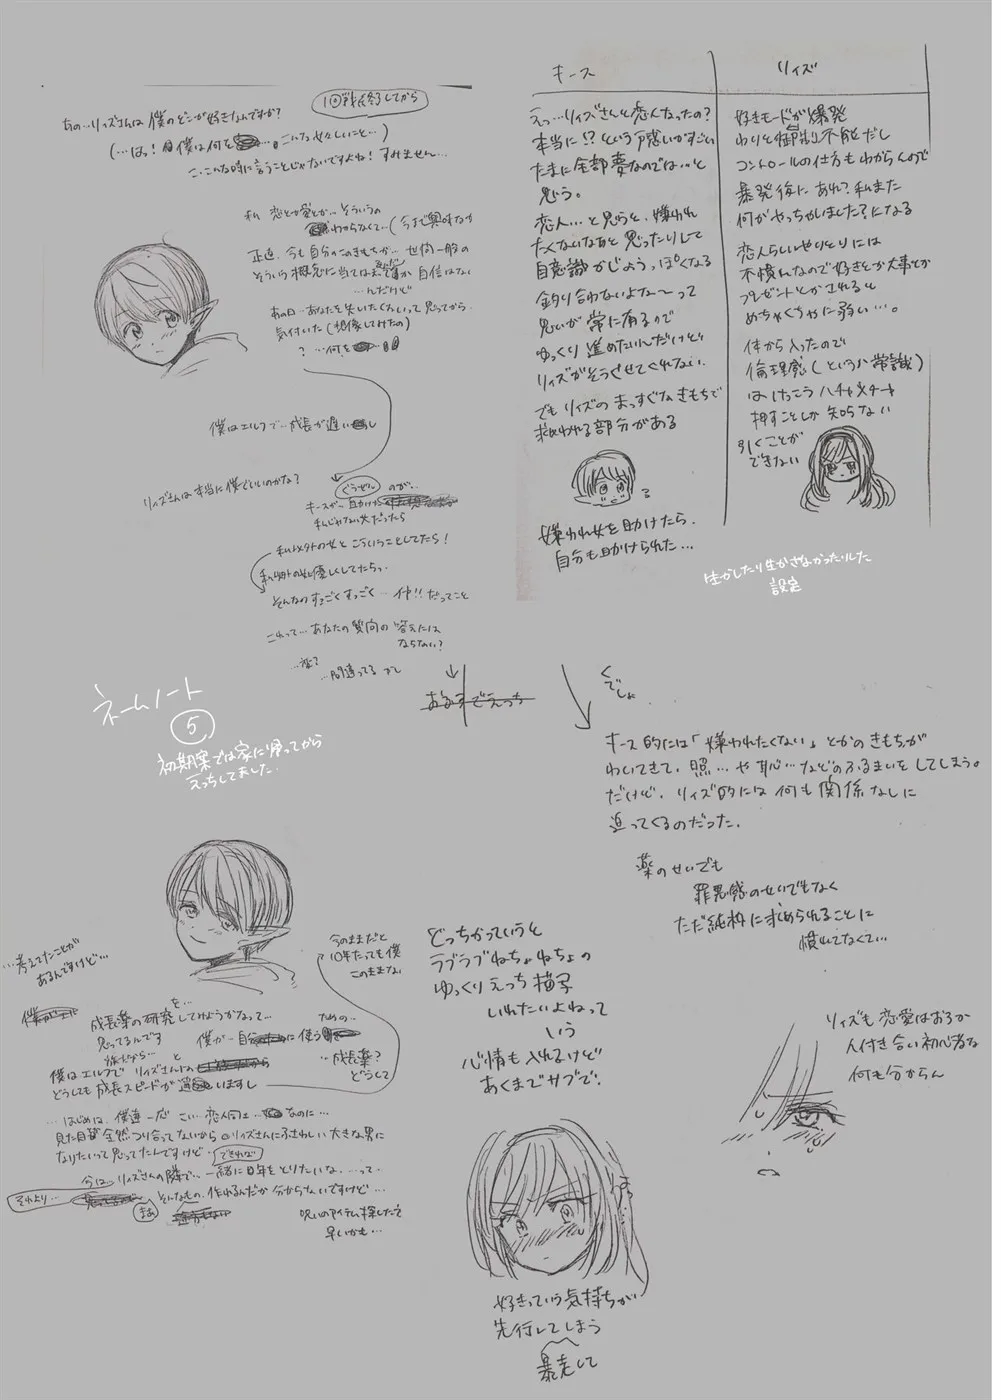 1回戦終了してから
あの…リィズさんは僕のどこが好きなんですか?
(…はっ! 僕は何を…こんな女々しいこと…)
こ…こんな時に言うことじゃないですよね! すみません…
私 恋とか愛とか…そういうの
わからなくて…(今まで興味なか
正直、今も自分のこのきもちが…世間一般の
そういう概念に当てはまるか自信はない
…んだけど
あの日…あなたを失いたくないって思ってから
気付いた(想像してみたの)
? …何を
僕はエルフで…成長が遅いし
リィズさんは本当に僕でいいのかな?
ぐうぜん
キースが…助けた のが…
私じゃない女だったら
私以外の女とこういうことしてたら!
私以外の 優しくしてたらっ
そんなのすっごくすっごく…イヤ!!だってこと
これって…あなたの質問の答えには
ならない?
…変?
…間違ってる かし
ネームノート
⑤
初期案では家に帰ってから
えっちしてました。
おうちでえっち
キース
えっ…リィズさんと恋人なったの?
本当に!?という戸惑いがすごい
たまに全部夢なのでは…と
思う。
恋人…と思うと、嫌われ
たくないなぁと思ったりして
自意識かじょうっぽくなる
釣り合わないよな〜って
思いが常に有るので
ゆっくり進めたいんだけど
リィズがそうさせてくれない。
でもリィズのまっすぐなきもちで
救われる部分がある
?
嫌われ女を助けたら、
自分も助けられた…
リィズ
好きモードが爆発
わりと御制不能だし
コントロールの仕方もわからんので
暴発後にあれ?私また
何かやっちゃいました?になる
恋人らしいやりとりには
不慣れなので好きとか大事とか
プレゼントとかされると
めちゃくちゃに弱い…。
体から入ったので
倫理感(というか常識)
はけっこうハチャメチャ
押すことしか知らない
引くことが
できない
生かしたり生かさなかったりした
設定
キース的には「嫌われたくない」とかのきもちが
わいてきて、照…や恥…などのふるまいをしてしまう。
だけど、リィズ的には何も関係なしに
迫ってくるのだった。
薬のせいでも
罪悪感のせいでもなく
ただ純粋に求められることに
慣れてなくて…
…考えてたことが
あるんですけど…
今のままだと
10年たっても僕
このままな
を…
成長薬の研究してみようかなって…
思ってるんです
僕が 自分に使う
ための…
…成長薬?
どうして
僕はエルフで リィズさんと
どうしても成長スピードが違いますし
…はじめは、僕達一応 こい…恋人同士…なのに…
見た目が全然つり合ってないからリィズさんにふさわしい大きな男に
なりたいって思ってたんですけど
できれば
今はリィズさんの隣で…一緒に年をとりたいな…って。
それより…
まぁ
そんなもの、作れるんだか分からないですけど…
呪いのアイテム探した方
早いかも…
どっちかっていうと
ラブラブねちょねちょの
ゆっくりえっち描写
いれたいよねって
いう
心情も入れるけど
あくまでサブで。
リィズも恋愛はおろか
人付き合い初心者な
何も分からん
好きっていう気持ちが
先行してしまう
暴走して